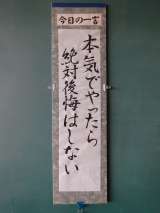 今日の一言
本気でやったら
絶対後悔はしない